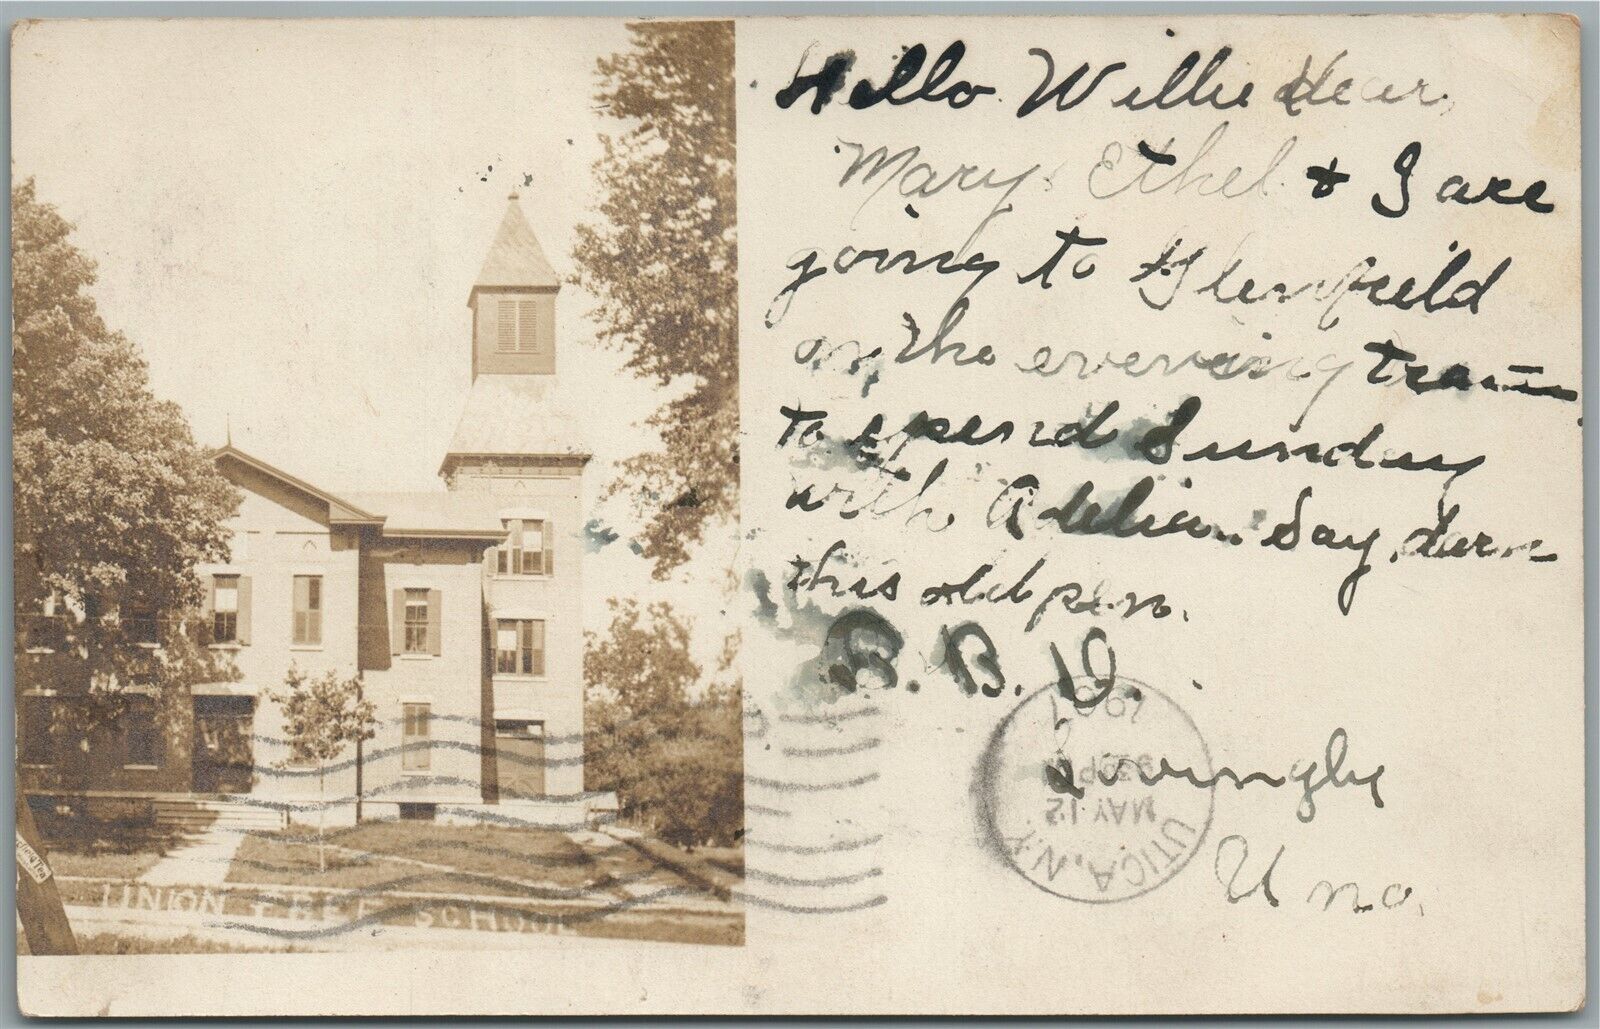 Hello Willie Dear,
Mary Ethel & I are
going to Glenfield
on the evening train
to spend Sunday
with Adelia. Say, darn
this old pen.
B. B. D.
Lovingly
Uno.
UTICA, N.Y.
MAY 12
930P
1907
UNION FREE SCHOOL